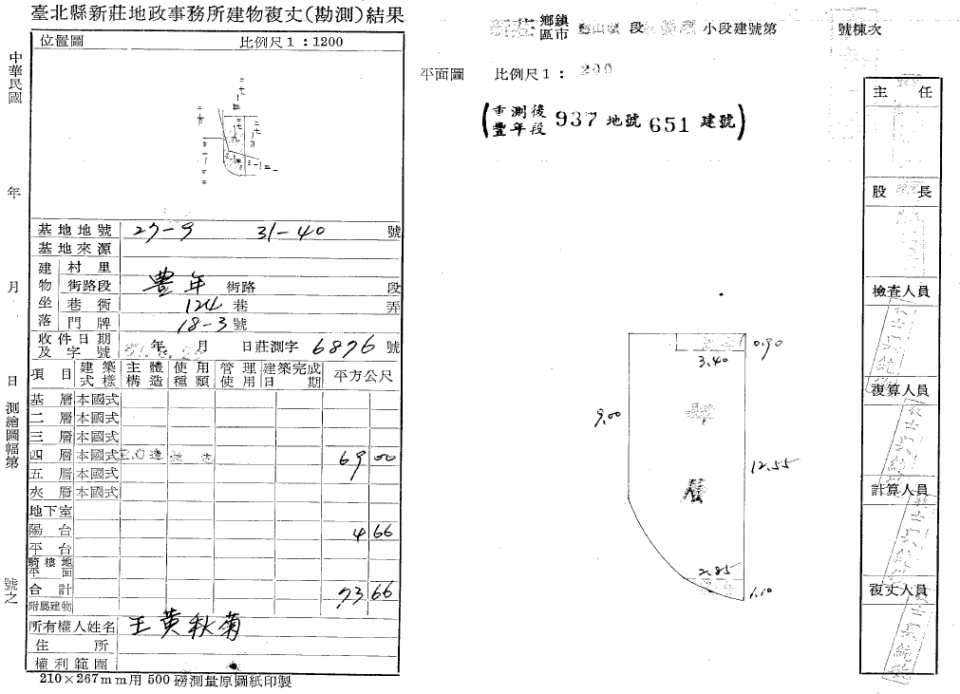 臺北縣新莊地政事務所建物複丈(勘測)結果
位置圖 比例尺1:1200
中華民國 年 月 日測繪圖幅第 號之
基地地號 27-9 31-40 號
基地來源
建物坐落
村里
街路段 豊年 街路 段
巷衖 124 巷 弄
門牌 18-3 號
收件日期及字號 年 月 日莊測字 6876 號
項目 建築式樣 主體構造 使用種類 管理使用 建築完成日期 平方公尺
基層 本國式
二層 本國式
三層 本國式
四層 本國式 69 00
五層 本國式
夾層 本國式
地下室
陽台 4 66
平台
騎樓地平面
合計 73 66
附屬建物
所有權人姓名 王黃秋菊
住所
權利範圍
210×267mm用500磅測量原圖紙印製
鄉鎮區市 段 小段建號第 號棟次
平面圖 比例尺1: 200
(重測後豐年段 937 地號 651 建號)
0.90
3.40
9.00
12.55
層
2.85
1.10
主任
股長
檢查人員
複算人員
計算人員
複丈人員